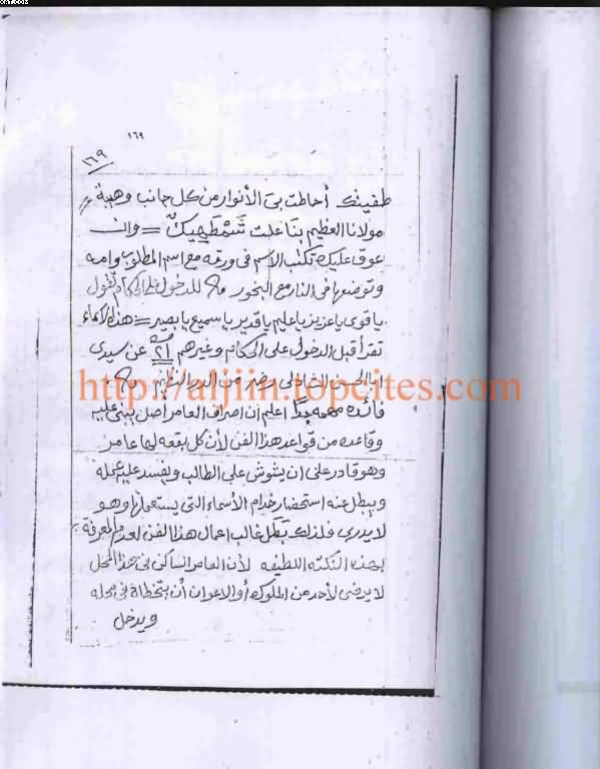 ١٦٩
١٦٩
أحاطت بى الأنوار من كل جانب وهيبة
مولانا العظيم بنا علت = وان
عوق عليك تكتب الاسم فى ورقه مع اسم المطلوب وامه
وتوضعها فى النار مع البخور للدخول على الحكام تقول
يا قوى يا عزيز يا عليم يا قدير يا سميع يا بصير = هذه الأسماء
تقرأ قبل الدخول على الحكام وغيرهم ٢١ عن سيدى
ابا الحسن الشاذلى رضى من
http://aljiin.topcites.com
فائده مهمه جدًا اعلم أن اصراف العامر أصل يبنى عليه
وقاعده من قواعد هذا الفن لأن كل بقعه لها عامر
وهو قادر على ان يشوش على الطالب ويفسد عليه عمله
ويبطل عنه استحضار خدام الأسماء التى يستعملها وهو
لا يدرى فلذلك تبطل غالب اعمال هذا الفن لعدم المعرفة
بهذه النكته اللطيفه لأن العامر الساكن فى هذا المحل
لا يرضى لأحد من الملوك أو الاعوان أن يتخطاه فى محله
ويدخل